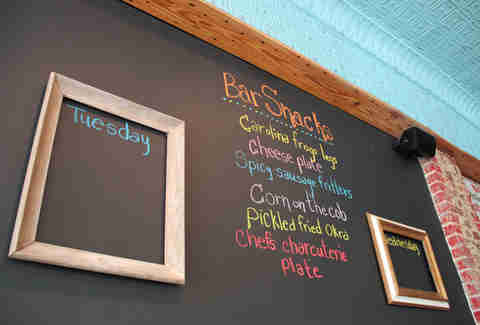 Tuesday
Bar Snacks
Carolina frogs legs
Cheese plate
Spicy sausage fritters
Corn on the cob
Pickled fried Okra
Chefs charcuterie
Plate
Wednesday